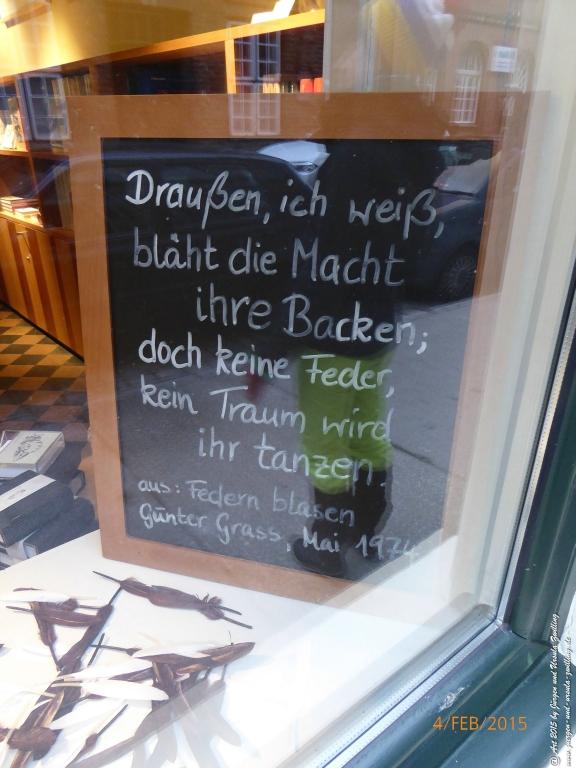 Draußen, ich weiß,
bläht die Macht
ihre Backen;
doch keine Feder,
kein Traum wird
ihr tanzen.
aus: Federn blasen
Günter Grass, Mai 1974
4/FEB/2015
@ Art 2015 by Jürgen und Ursula Zwilling
www.juergen-und-ursula-zwilling.de